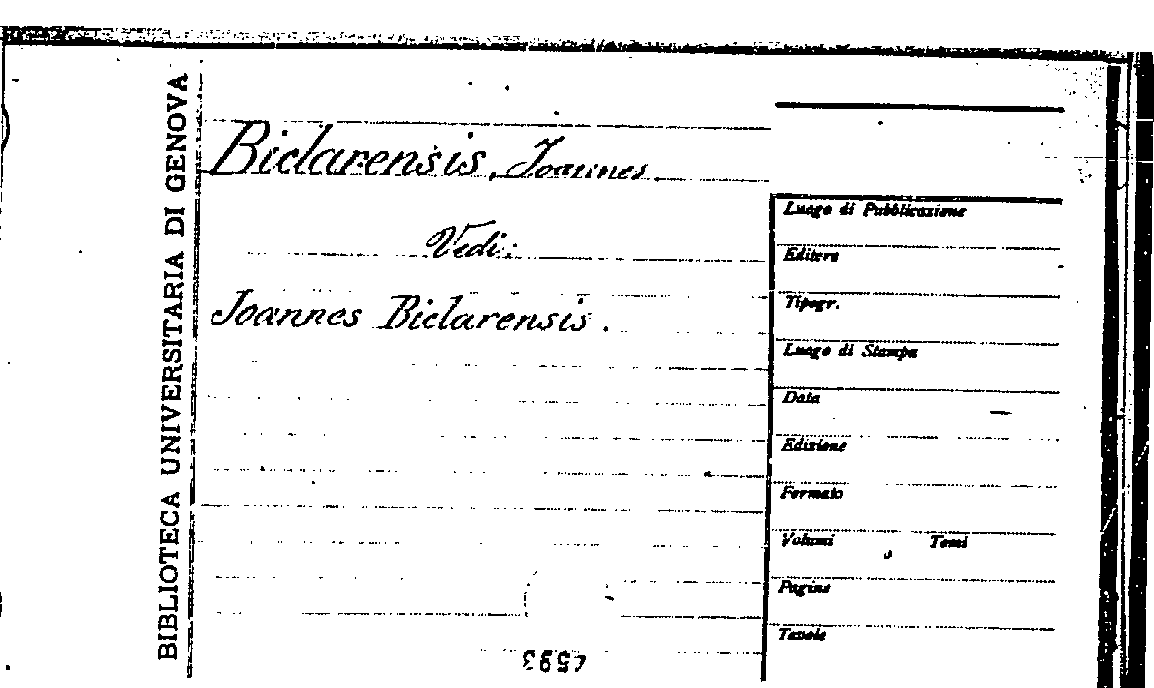 BIBLIOTECA UNIVERSITARIA DI GENOVA
Biclarensis, Joannes.
Vedi:
Joannes Biclarensis.
Luogo di Pubblicazione
Editore
Tipogr.
Luogo di Stampa
Data
Edizione
Formato
Volumi Tomi
Pagine
Tavole